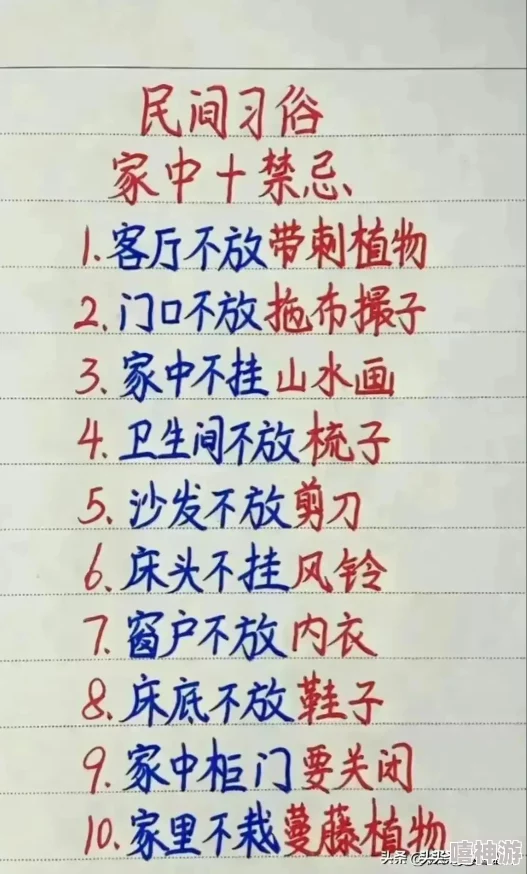 民间习俗
家中十禁忌
1.客厅不放带刺植物
2.门口不放拖布撮子
3.家中不挂山水画
4.卫生间不放梳子
5.沙发不放剪刀
6.床头不挂风铃
7.窗户不放内衣
8.床底不放鞋子
9.家中柜门要关闭
10.家里不栽蔓藤植物
头条
嘻神游